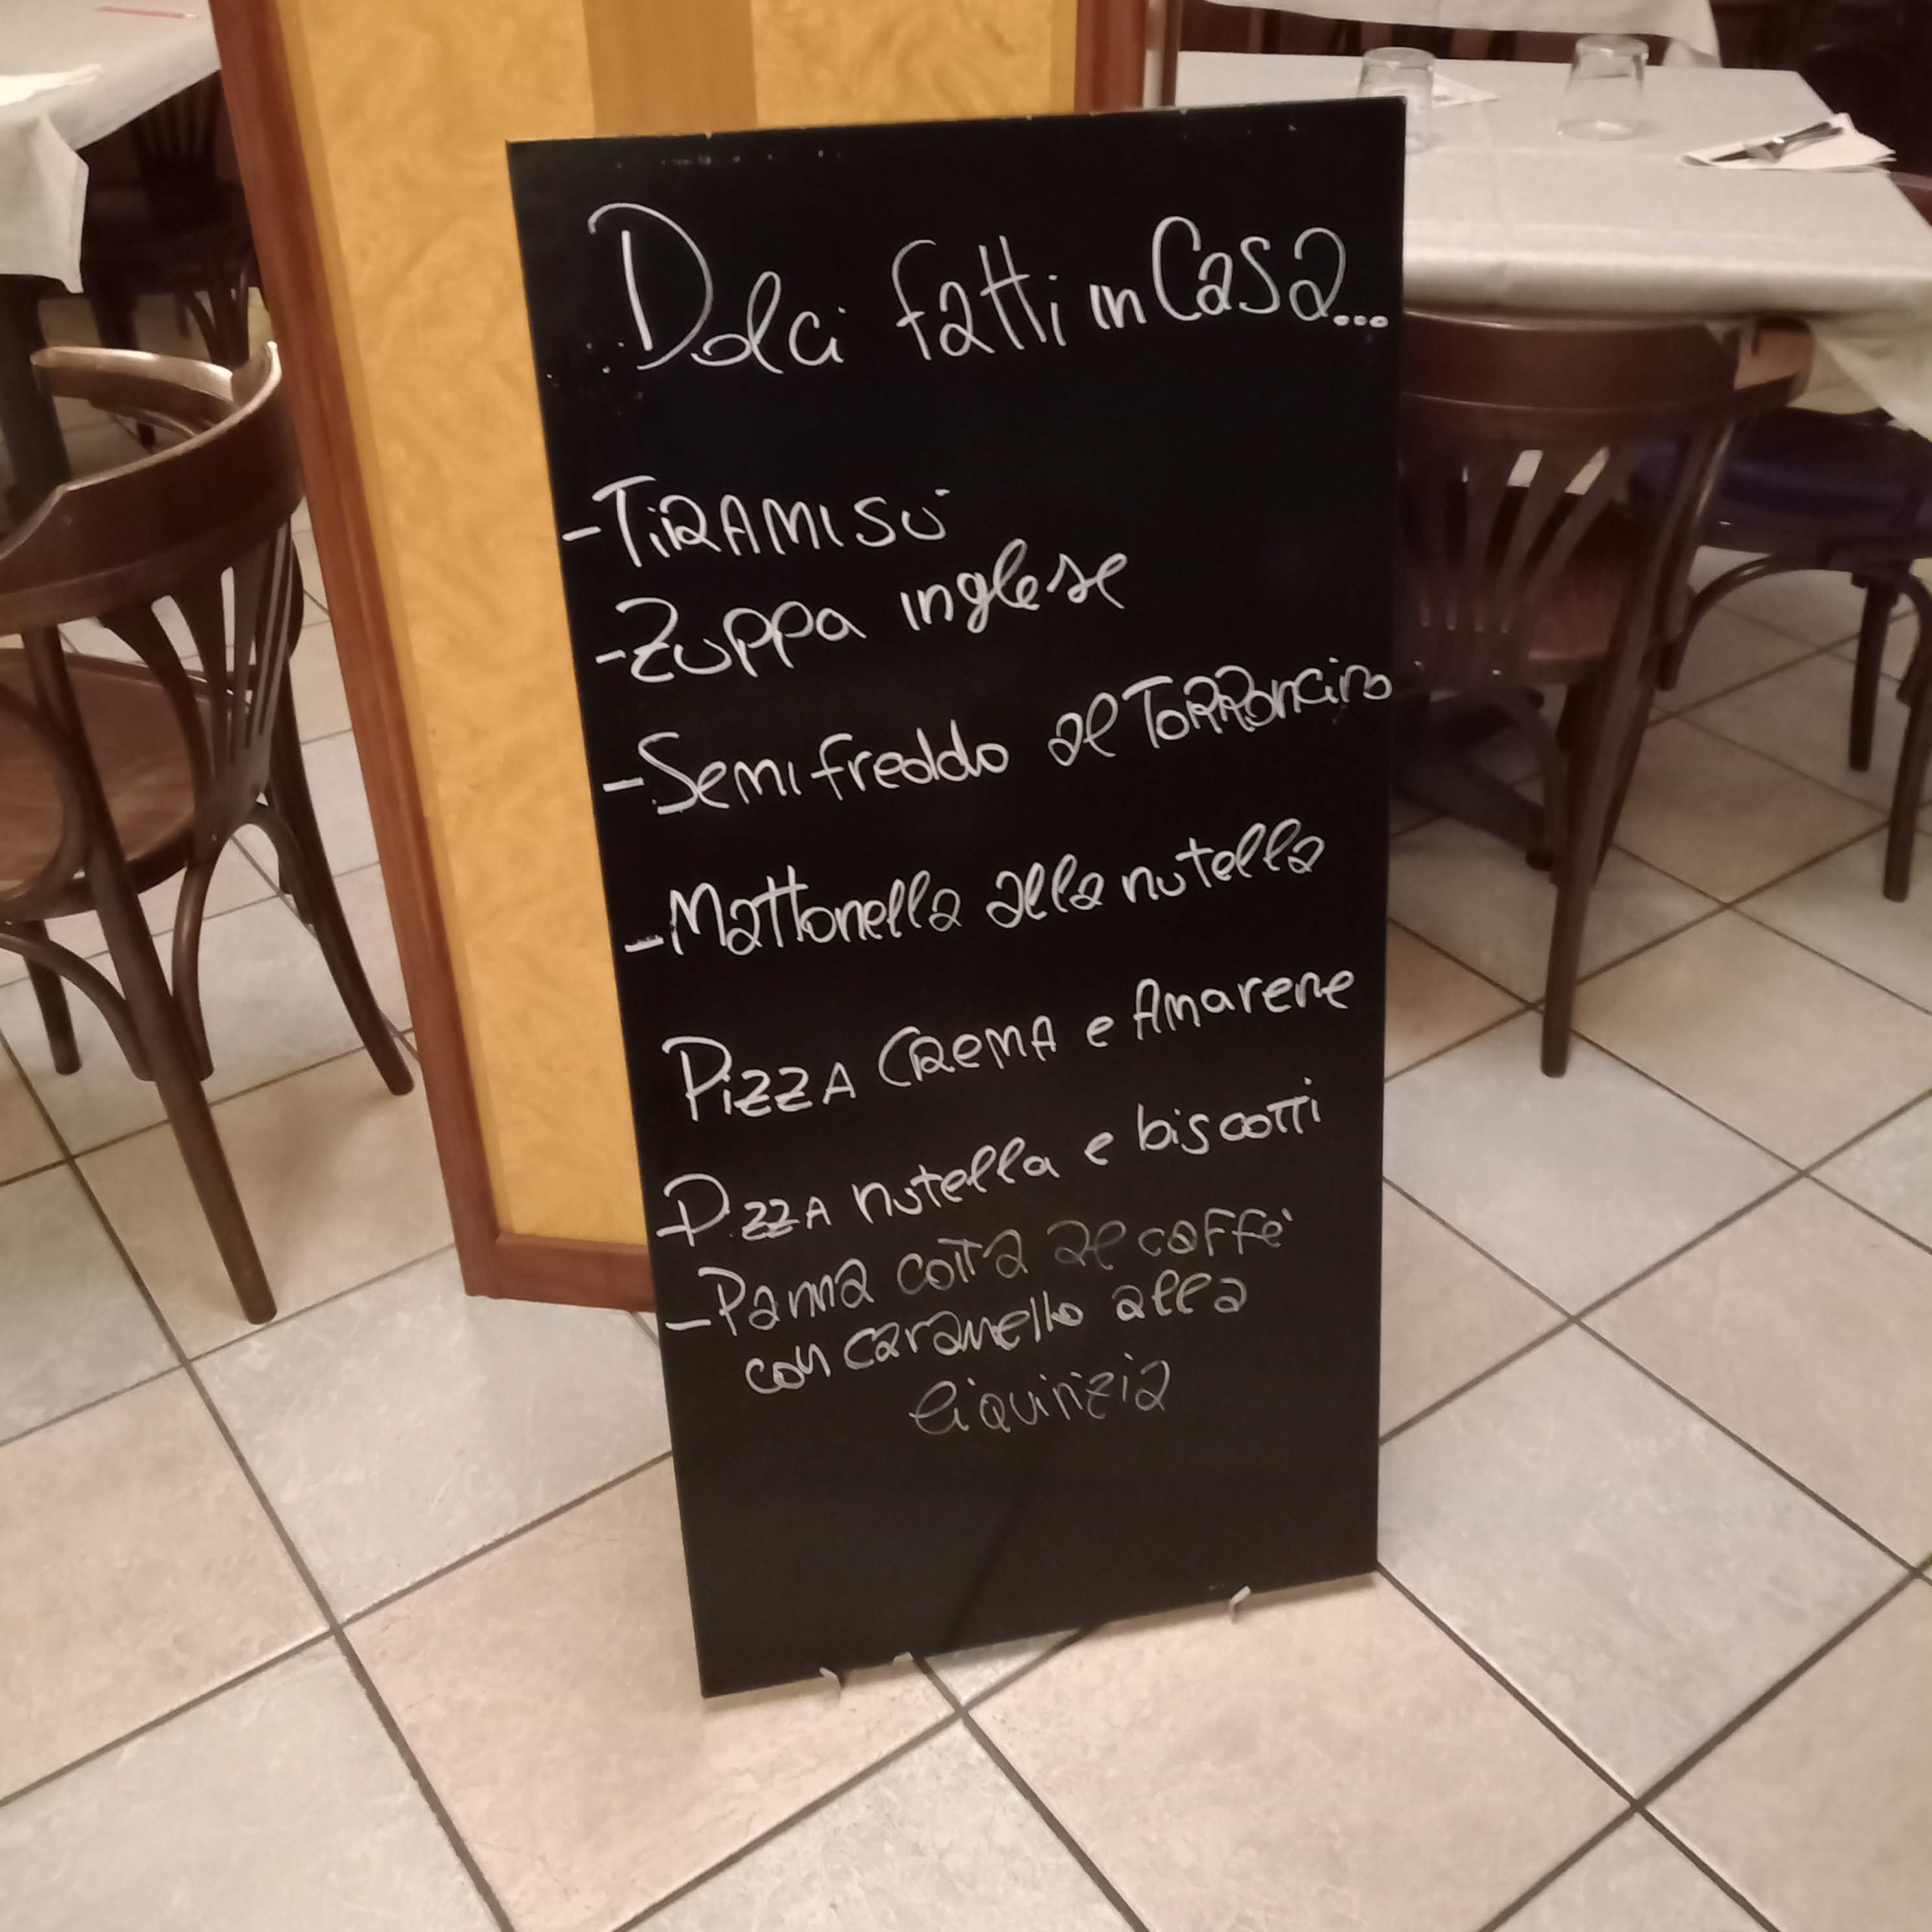 Dolci fatti in Casa...
- TiRAMISÙ
- Zuppa inglese
- Semifreddo al TORRoncino
- Mattonella alla nutella
PizzA CReMA e Amarene
PizzA nutella e biscotti
- Panna cotta al caffè
con caramello alla
liquirizia